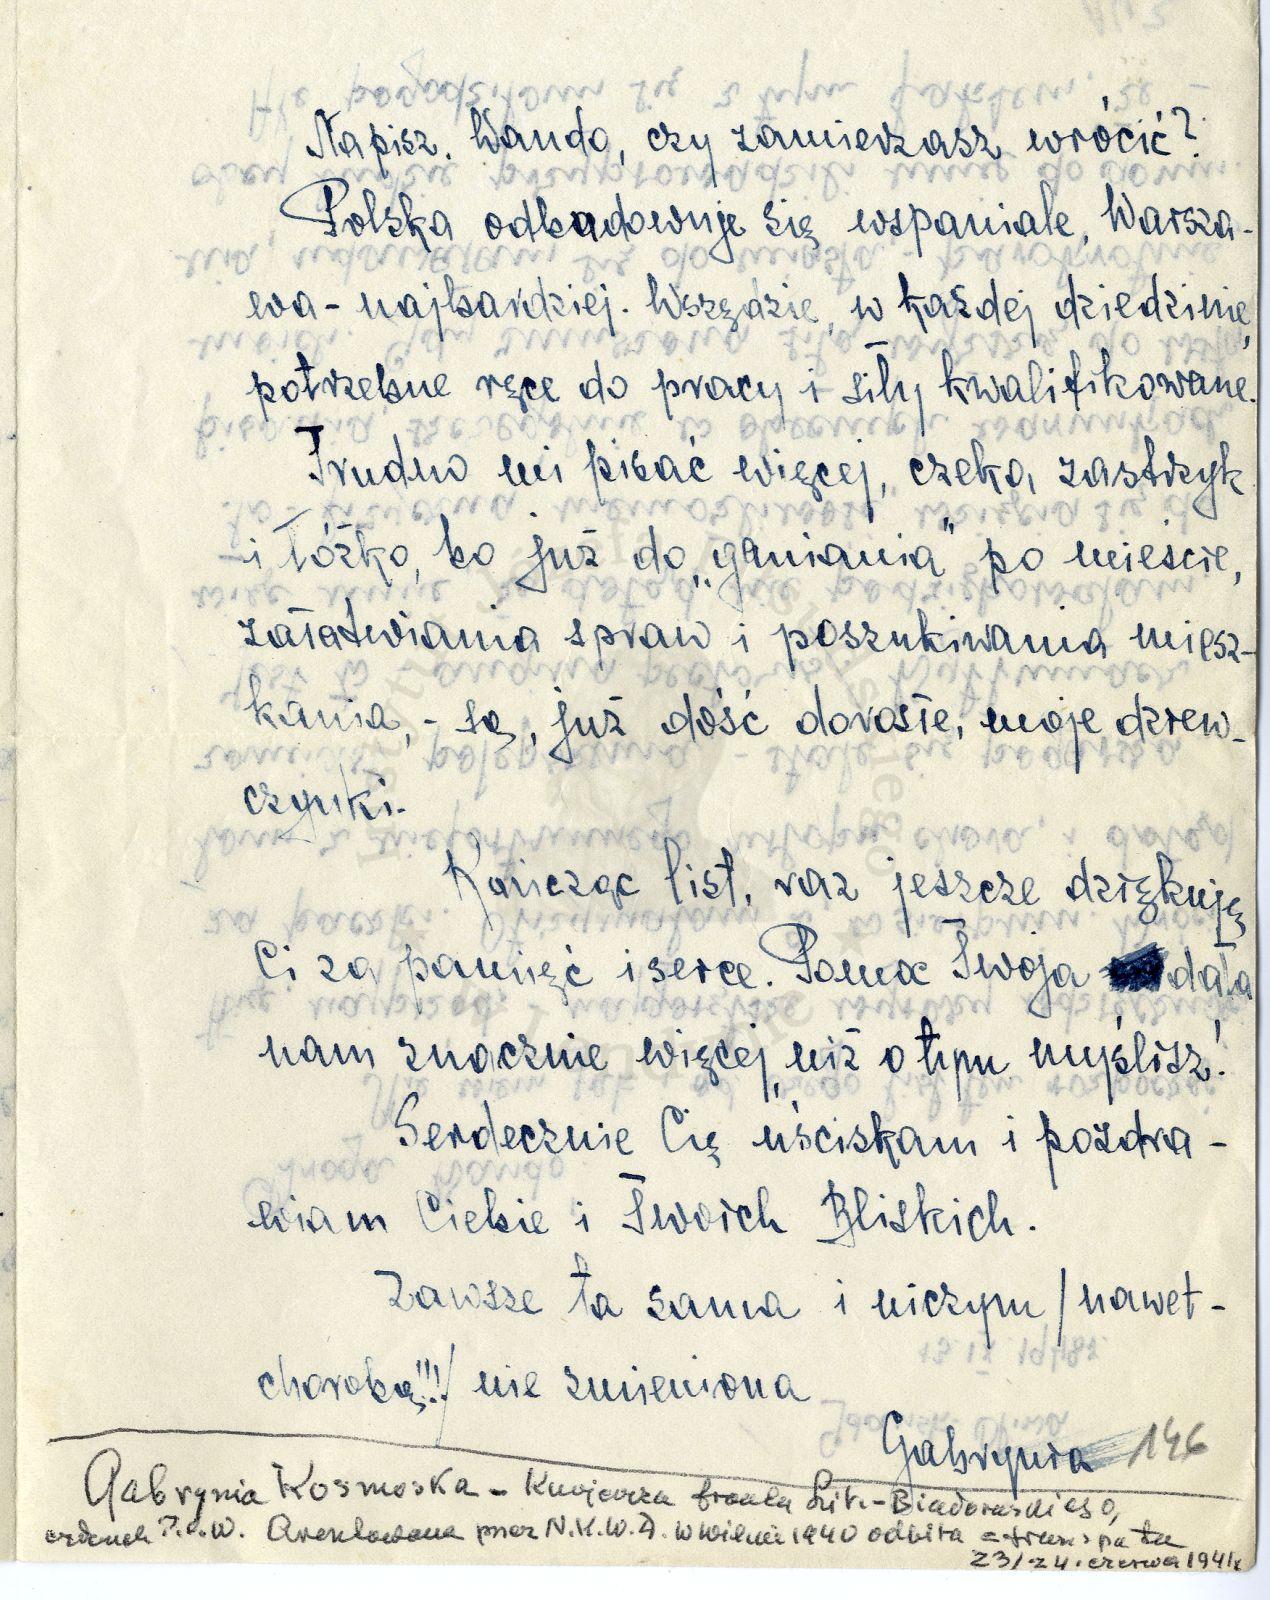 Napisz, Wando, czy zamierzasz wrócić?
Polska odbudowuje się wspaniale, Warsza-
wa - najbardziej. Wszędzie, w każdej dziedzinie,
potrzebne ręce do pracy i siły kwalifikowane.
Trudno mi pisać więcej, czeka zastrzyk
i łóżko, bo już do "ganiania" po mieście,
załatwiania spraw i poszukiwania miesz-
kania, - są, już dość dorosłe, moje dziew-
czynki.
Kończąc list, raz jeszcze dziękuję
Ci za pamięć i serce. Pomoc Twoja dała
nam znacznie więcej, niż o tym myślisz!
Serdecznie Cię uściskam i pozdra-
wiam Ciebie i Twoich Bliskich.
Zawsze ta sama i niczym /nawet-
chorobą!!!/ nie zmieniona
Gabrynia 146
Gabrynia Kosmoska - Kurjerka frontu Lit.-Białoruskiego,
członek P.O.W. Aresztowana przez N.K.W.D. w Wilnie 1940 odbita z transportu
23/24. czerwca 1941r